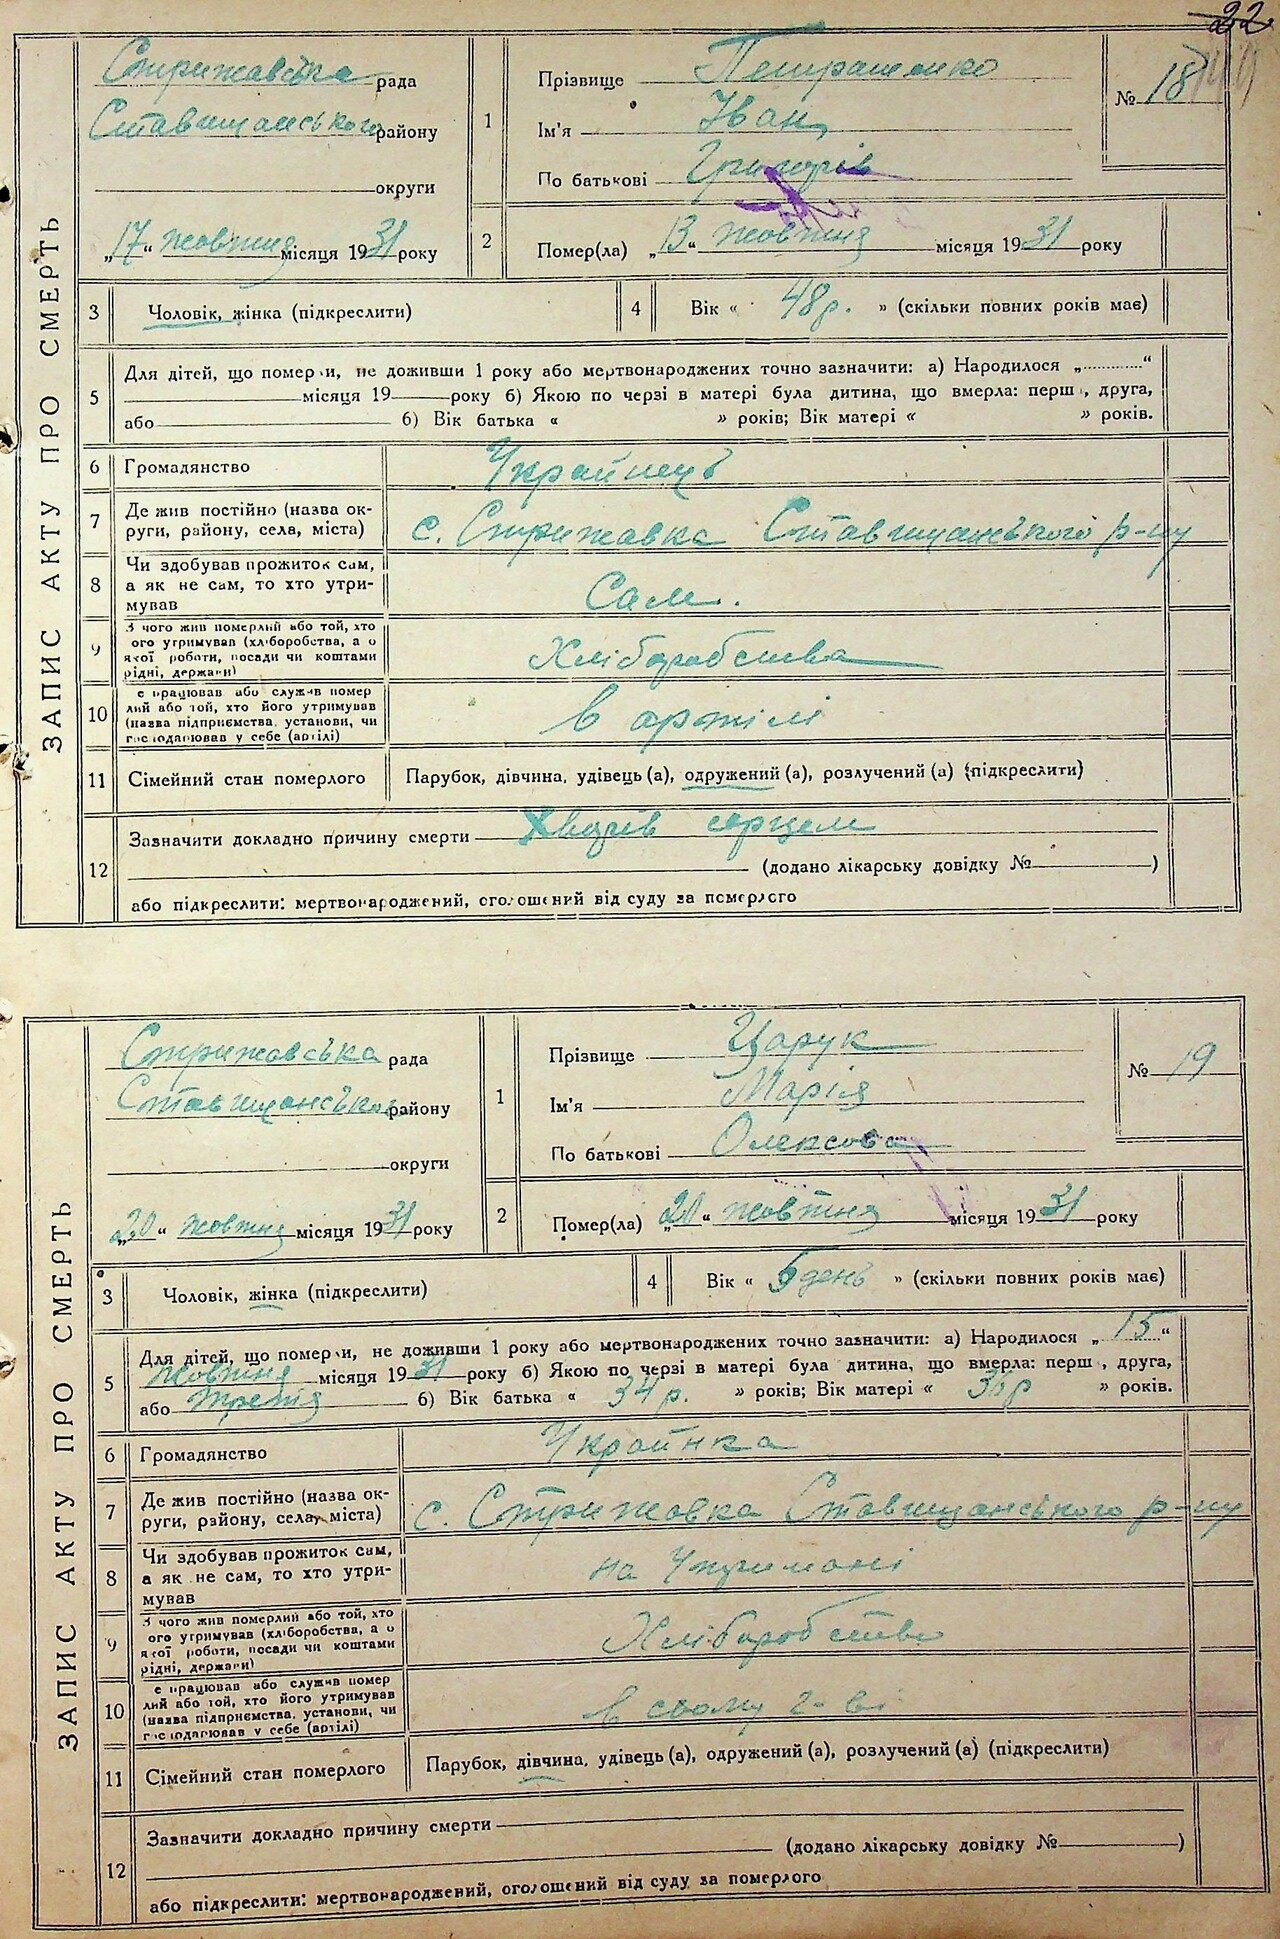 22
ЗАПИС АКТУ ПРО СМЕРТЬ
Стрижавська рада
Ставищанського району
округи
„17“ жовтня місяця 1931 року
1
Прізвище Петрашенко
Ім'я Іван
По батькові Григорів
№ 18
2
Помер(ла) „13“ жовтня місяця 1931 року
3 Чоловік, жінка (підкреслити)
4 Вік « 48 р. » (скільки повних років має)
5 Для дітей, що померли, не доживши 1 року або мертвонароджених точно зазначити: а) Народилося „ “
місяця 19 року б) Якою по черзі в матері була дитина, що вмерла: перша, друга,
або б) Вік батька « » років; Вік матері « » років.
6 Громадянство Українець
7 Де жив постійно (назва ок-
руги, району, села, міста) с. Стрижавка Ставищанського р-ну
8 Чи здобував прожиток сам,
а як не сам, то хто утри-
мував Сам.
9 З чого жив померлий або той, хто
ого утримував (хліборобства, а о
якої роботи, посади чи коштами
рідні, держави) Хліборобства
10 е працював або служив помер
лий або той, хто його утримував
(назва підприємства, установи, чи
господарював у себе (артілі) в артілі
11 Сімейний стан померлого Парубок, дівчина, удівець(а), одружений(а), розлучений(а) (підкреслити)
12 Зазначити докладно причину смерти Хворів серцем
(додано лікарську довідку № )
або підкреслити: мертвонароджений, оголошений від суду за померлого
ЗАПИС АКТУ ПРО СМЕРТЬ
Стрижавська рада
Ставищанського району
округи
„20“ жовтня місяця 1931 року
1
Прізвище Царук
Ім'я Марія
По батькові Олексова
№ 19
2
Помер(ла) „20“ жовтня місяця 1931 року
3 Чоловік, жінка (підкреслити)
4 Вік « 5 день » (скільки повних років має)
5 Для дітей, що померли, не доживши 1 року або мертвонароджених точно зазначити: а) Народилося „15“
жовтня місяця 1931 року б) Якою по черзі в матері була дитина, що вмерла: перша, друга,
або третя б) Вік батька « 34 р. » років; Вік матері « р » років.
6 Громадянство Українка
7 Де жив постійно (назва ок-
руги, району, села, міста) с. Стрижовка Ставищанського р-ну
8 Чи здобував прожиток сам,
а як не сам, то хто утри-
мував на Утримані
9 З чого жив померлий або той, хто
ого утримував (хліборобства, а о
якої роботи, посади чи коштами
рідні, держави) Хліборобства
10 е працював або служив помер
лий або той, хто його утримував
(назва підприємства, установи, чи
господарював у себе (артілі) в свому г-ві
11 Сімейний стан померлого Парубок, дівчина, удівець(а), одружений(а), розлучений(а) (підкреслити)
12 Зазначити докладно причину смерти
(додано лікарську довідку № )
або підкреслити: мертвонароджений, оголошений від суду за померлого